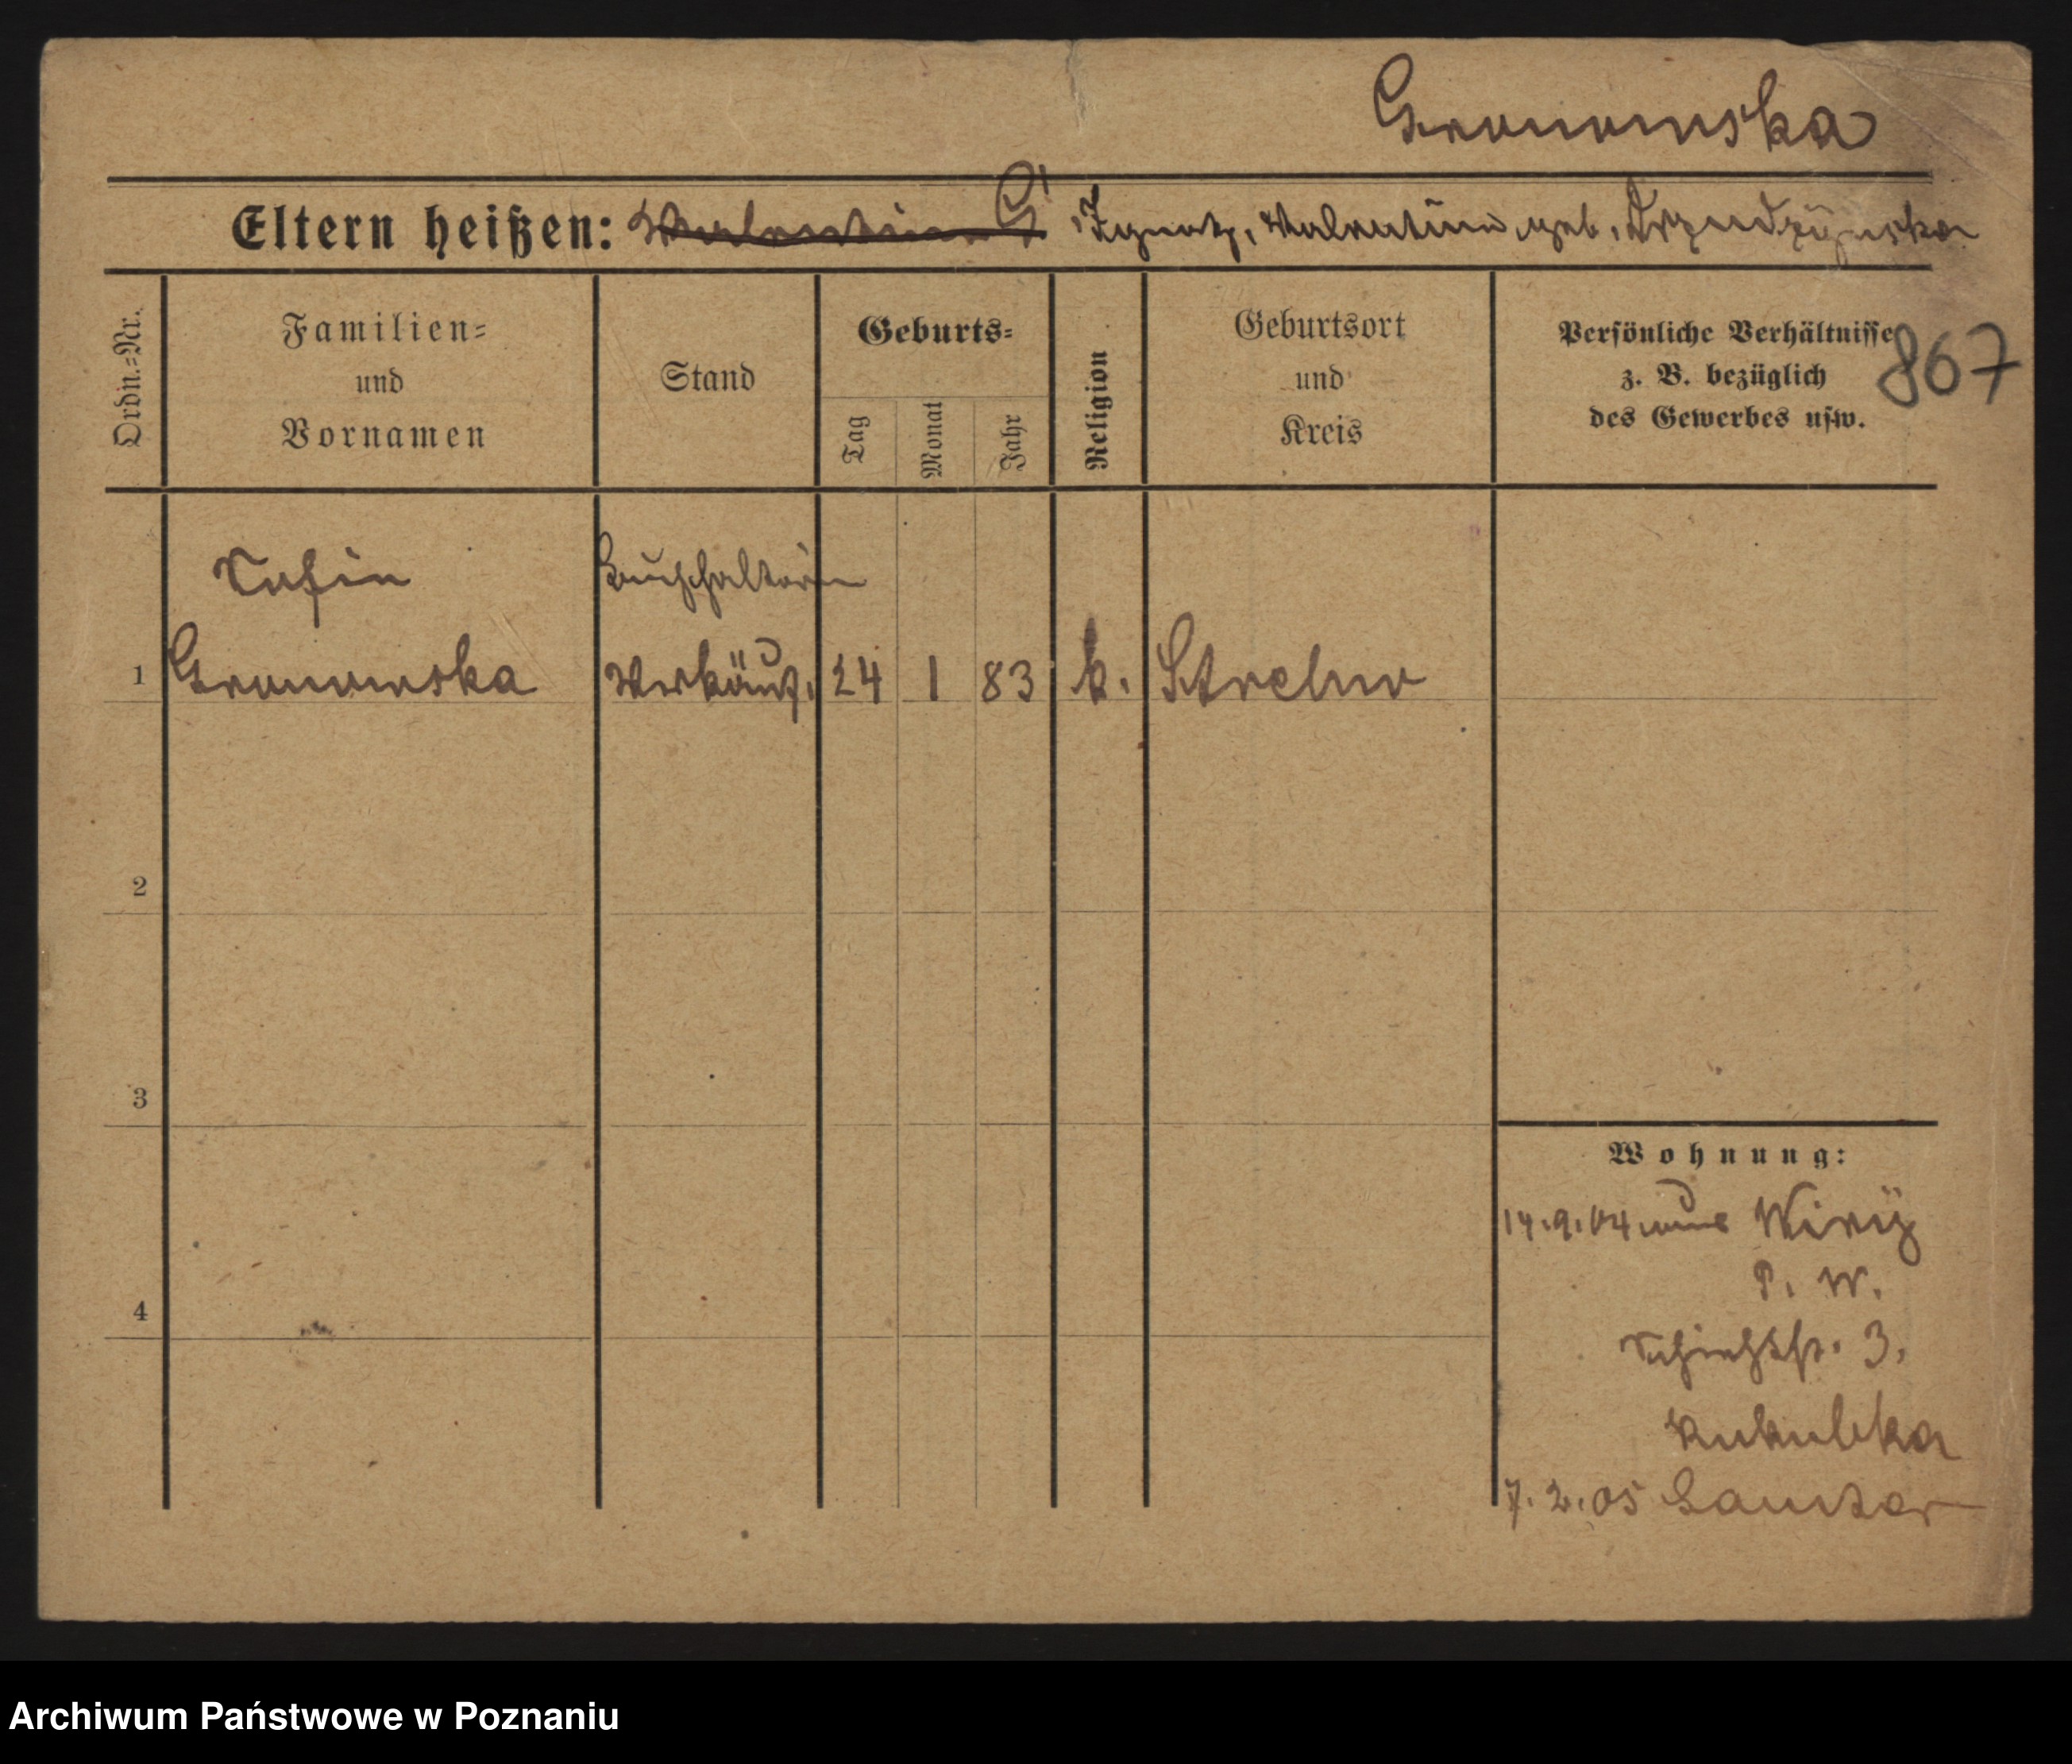 Gronowska
Eltern heißen: Valentine G Ignatz, Valentine geb.
Ordn.=Nr.
Familien=
und
Vornamen
Stand
Geburts=
Tag
Monat
Jahr
Religion
Geburtsort
und
Kreis
Persönliche Verhältnisse
z. B. bezüglich
des Gewerbes usw.
867
Sofie Buchhalterin
1 Gronowska Verkäuf. 24 1 83 k. Strelno
2
3
4
Wohnung:
14.9.04 aus
P. W.
3.
Kukulka
7.2.05
Archiwum Państwowe w Poznaniu